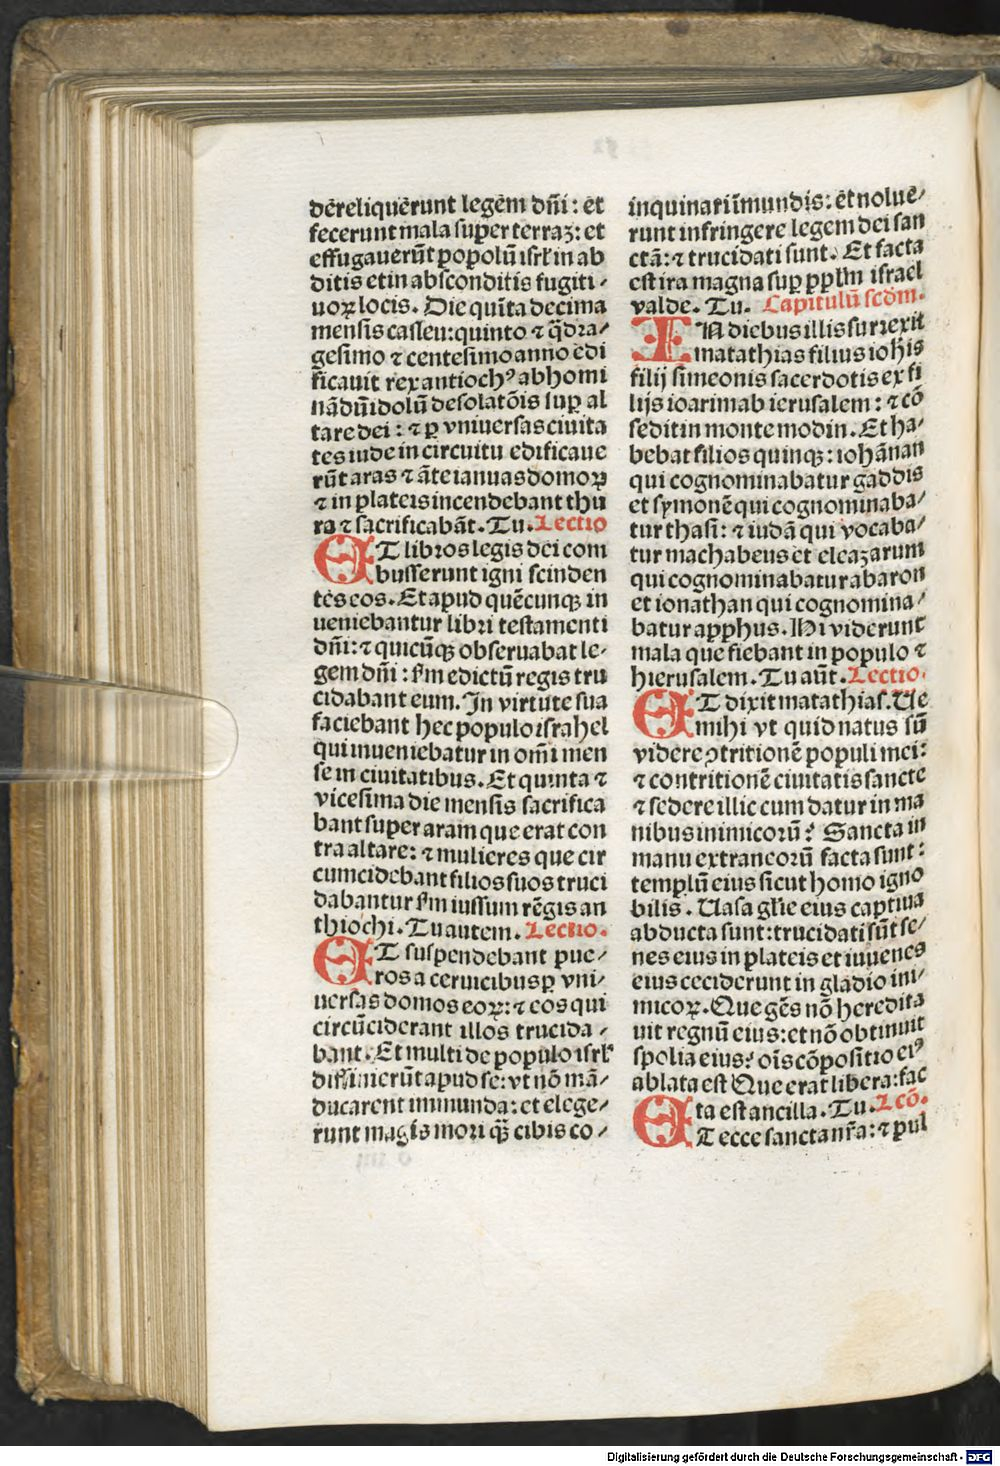 dereliquerunt legem dñi: et
fecerunt mala super terraʒ: et
effugauerūt popolū isrl in ab
ditis et in absconditis fugiti-
uoꝝ locis. Die quīta decima
mensis casleu: quinto ⁊ q̄dra-
gesimo ⁊ centesimo anno edi
ficauit rex antiochꝰ abhomi
nādū idolū desolatōis sup al
tare dei: ⁊ ꝑ vniuersas ciuita
tes iude in circuitu edificaue
rūt aras ⁊ āte ianuas domoꝝ
⁊ in plateis incendebant thu
ra ⁊ sacrificabāt. Tu. Lectio
ET libros legis dei com
busserunt igni scinden
tes eos. Et apud quēcunqꝫ in
ueniebantur libri testamenti
dñi: ⁊ quicūqꝫ obseruabat le-
gem dñi: ẜm edictū regis tru
cidabant eum. In virtute sua
faciebant hec populo israhel
qui inueniebatur in om̄i men
se in ciuitatibus. Et quinta ⁊
vicesima die mensis sacrifica
bant super aram que erat con
tra altare: ⁊ mulieres que cir
cumcidebant filios suos truci
dabantur ẜm iussum regis an
thiochi. Tu autem. Lectio.
ET suspendebant pue-
ros a ceruicibus ꝑ vni-
uersas domos eoꝝ: ⁊ eos qui
circūciderant illos trucida-
bant. Et multi de populo isrl
diffinierūt apud se: vt nō mā-
ducarent immunda: et elege-
runt magis mori q̄ꝫ cibis co-
inquinari īmundis: et nolue-
runt infringere legem dei san
ctā: ⁊ trucidati sunt. Et facta
est ira magna suꝑ pplm israel
valde. Tu. Capitulū scdm.
IN diebus illis surrexit
matathias filius iohis
filij simeonis sacerdotis ex fi
lijs ioarim ab ierusalem: ⁊ cō
sedit in monte modin. Et ha-
bebat filios quinqꝫ: iohānan
qui cognominabatur gaddis
et symonē qui cognominaba-
tur thasi: ⁊ iudā qui vocaba-
tur machabeus et eleazarum
qui cognominabatur abaron
et ionathan qui cognomina-
batur apphus. Hi viderunt
mala que fiebant in populo ⁊
hierusalem. Tu aūt. Lectio.
ET dixit matathias. Ue
mihi vt quid natus sū
videre ꝯtritionē populi mei:
⁊ contritionē ciuitatis sancte
⁊ sedere illic cum datur in ma
nibus inimicorū? Sancta in
manu extraneorū facta sunt:
templū eius sicut homo igno
bilis. Uasa glie eius captiua
abducta sunt: trucidati sūt se-
nes eius in plateis et iuuenes
eius ceciderunt in gladio ini-
micoꝝ. Que gēs nō heredita
uit regnū eius: et nō obtinuit
spolia eius? oīs cōpositio eiꝰ
ablata est Que erat libera: fac
ta est ancilla. Tu. Lcō.
ET ecce sancta nr̄a: ⁊ pul
Digitalisierung gefördert durch die Deutsche Forschungsgemeinschaft - DFG